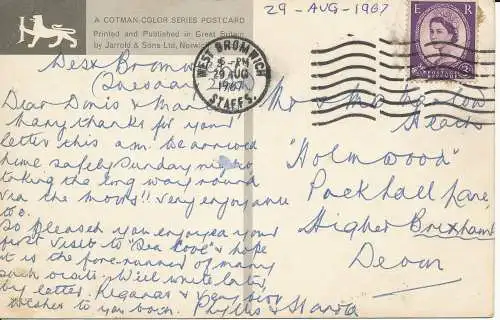 29 - AUG - 1967
A COTMAN-COLOR SERIES POSTCARD
Printed and Published in Great Britain
by Jarrold & Sons Ltd, Norwich
E R
WEST BROMWICH
5 - PM
29 AUG
1967
STAFFS.
West Bromwich
Tuesday
Dear Doris &
Many thanks for your
letter this a.m. We arrived
home safely Sunday night
taking the long way round
via the moors!! Very enjoyable
too.
So pleased you enjoyed your
first visit to "Sea Cove" & hope
it is the fore-runner of many
such visits. Will write later
by letter. Regards & Very best
wishes to you both. Phyllis &
Mr & Mrs
Heath
"Holmwood"
Packhall Lane
Higher Brixham
Devon